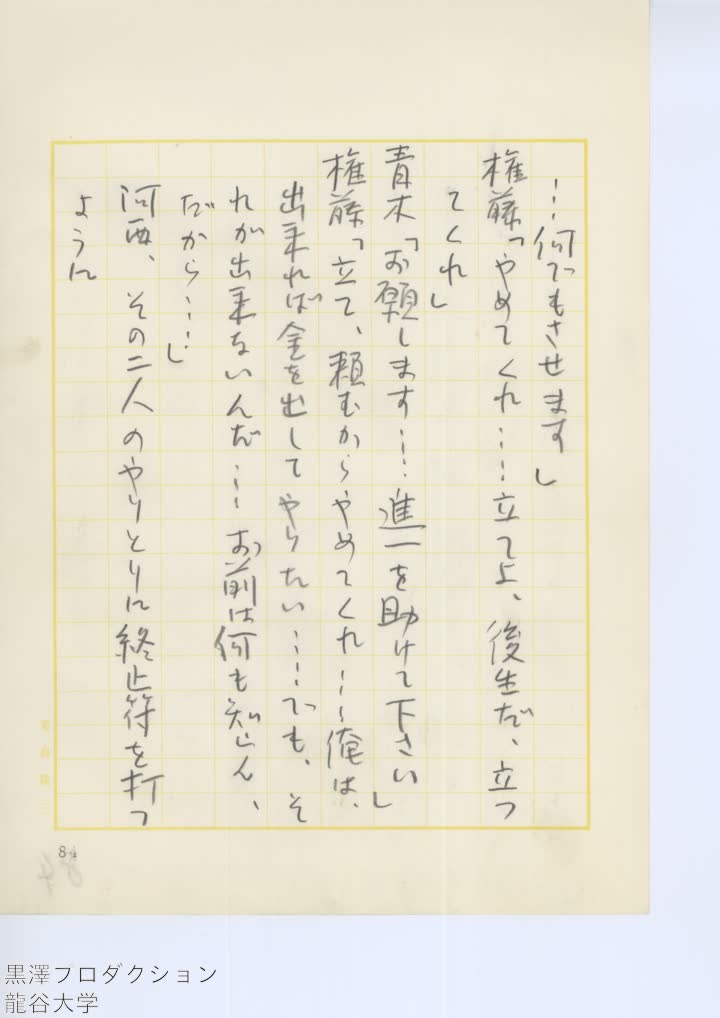 …何でもさせます」
権藤「やめてくれ……立てよ、後生だ、立つ
てくれ」
青木「お願します……進一を助けて下さい」
権藤「立て、頼むからやめてくれ……俺は、
出来れば金を出してやりたい……でも、そ
れが出来ないんだ…お前は何も知らん、
だから……」
河西、その二人のやりとりに終止符を打つ
ように
84
黒澤プロダクション
龍谷大学